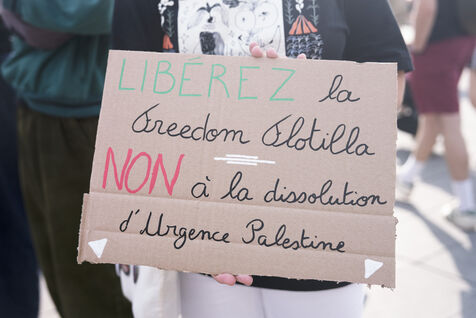 LIBÉREZ la
Freedom Flotilla
NON à la dissolution
d'Urgence Palestine